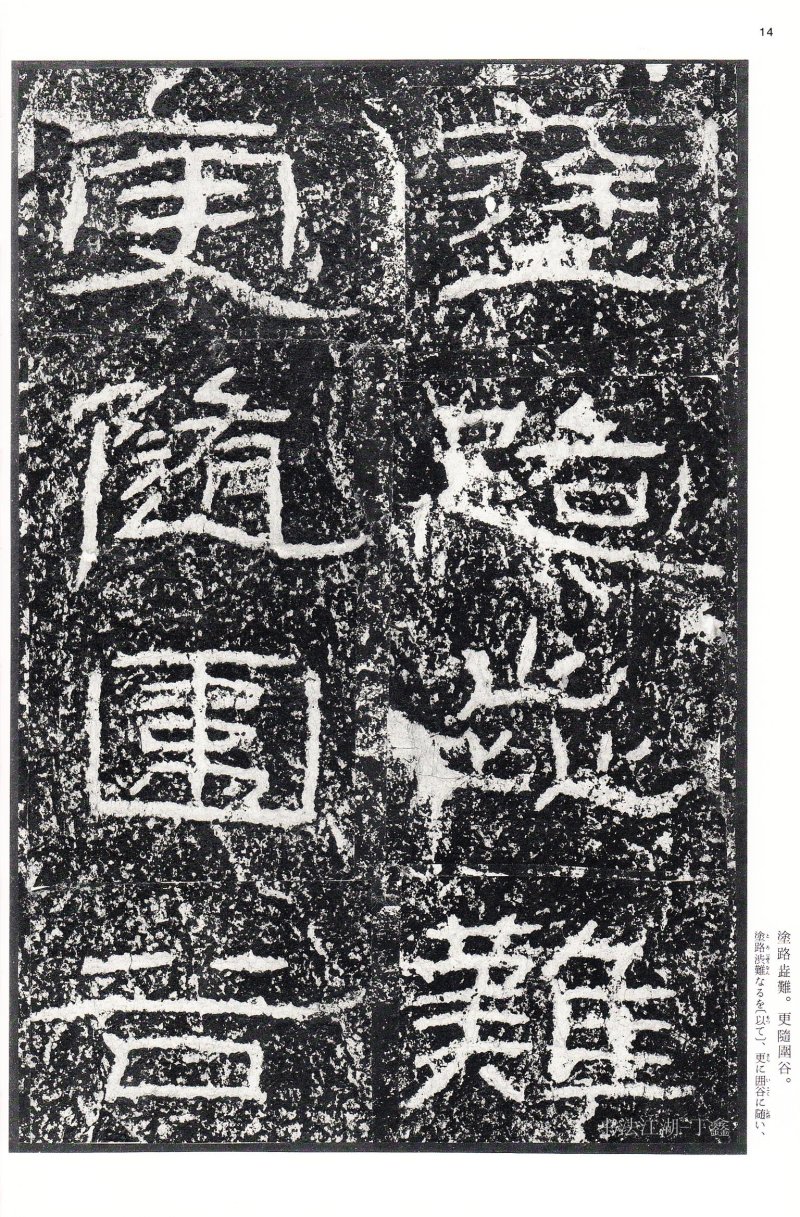 14
塗路歮難
更隨圍谷
塗路歮難。更隨圍谷。
塗路渋難なるを〔以て〕、更に囲谷に随い、
书法江湖-丁鑫